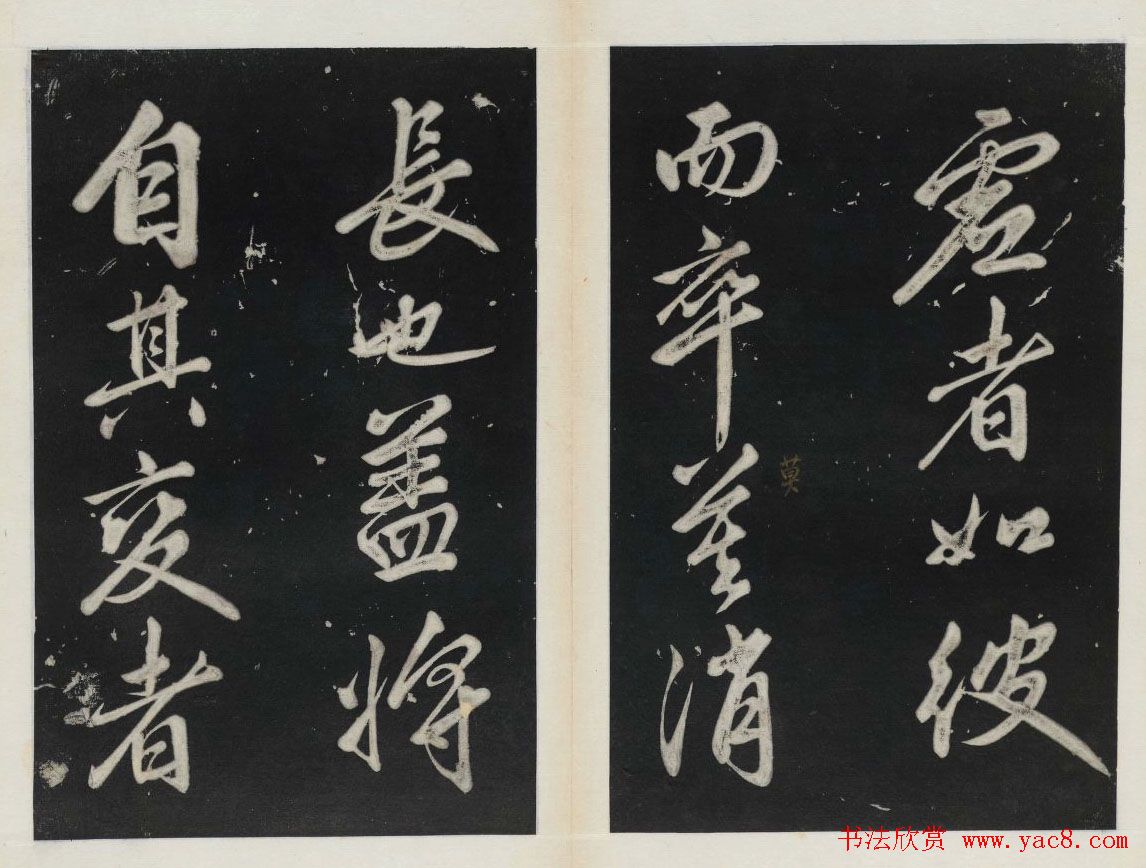 虚者如彼
而卒莫消
莫
長也盖將
自其变者
书法欣赏 www.yac8.com